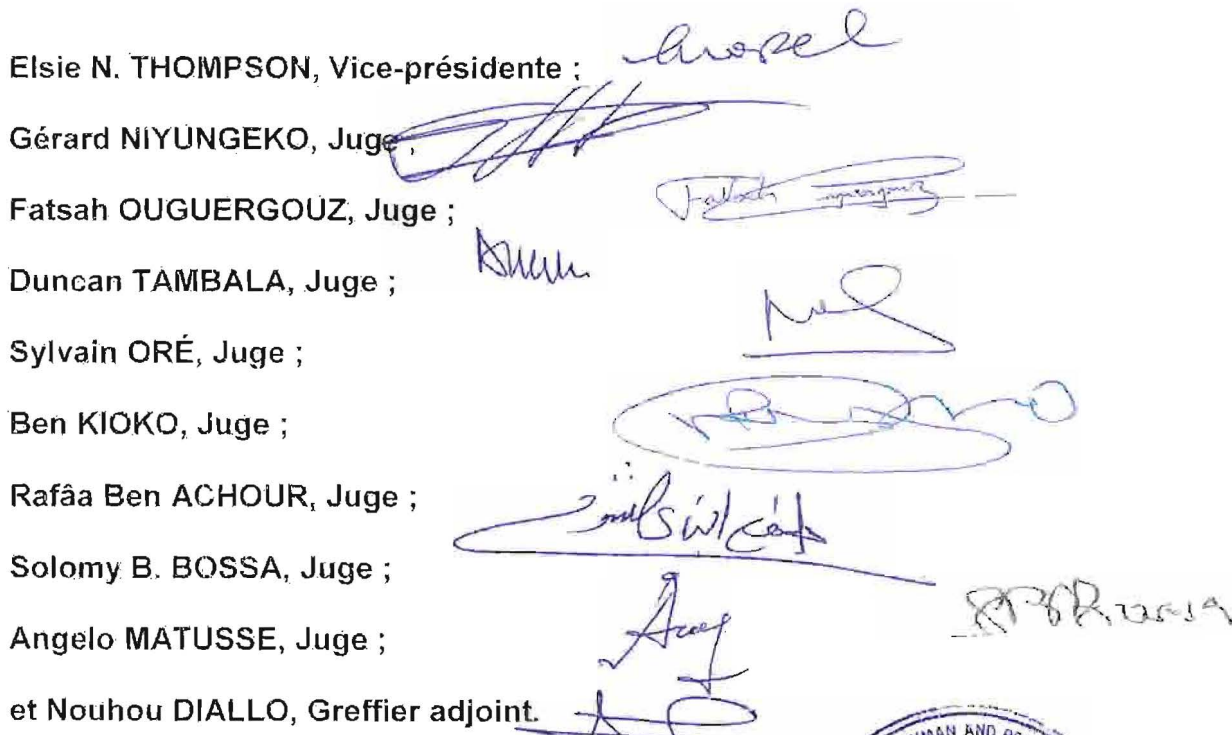 Elsie N. THOMPSON, Vice-présidente ;
Gérard NIYUNGEKO, Juge ;
Fatsah OUGUERGOUZ, Juge ;
Duncan TAMBALA, Juge ;
Sylvain ORÉ, Juge ;
Ben KIOKO, Juge ;
Rafâa Ben ACHOUR, Juge ;
Solomy B. BOSSA, Juge ;
Angelo MATUSSE, Juge ;
et Nouhou DIALLO, Greffier adjoint.
HUMAN AND